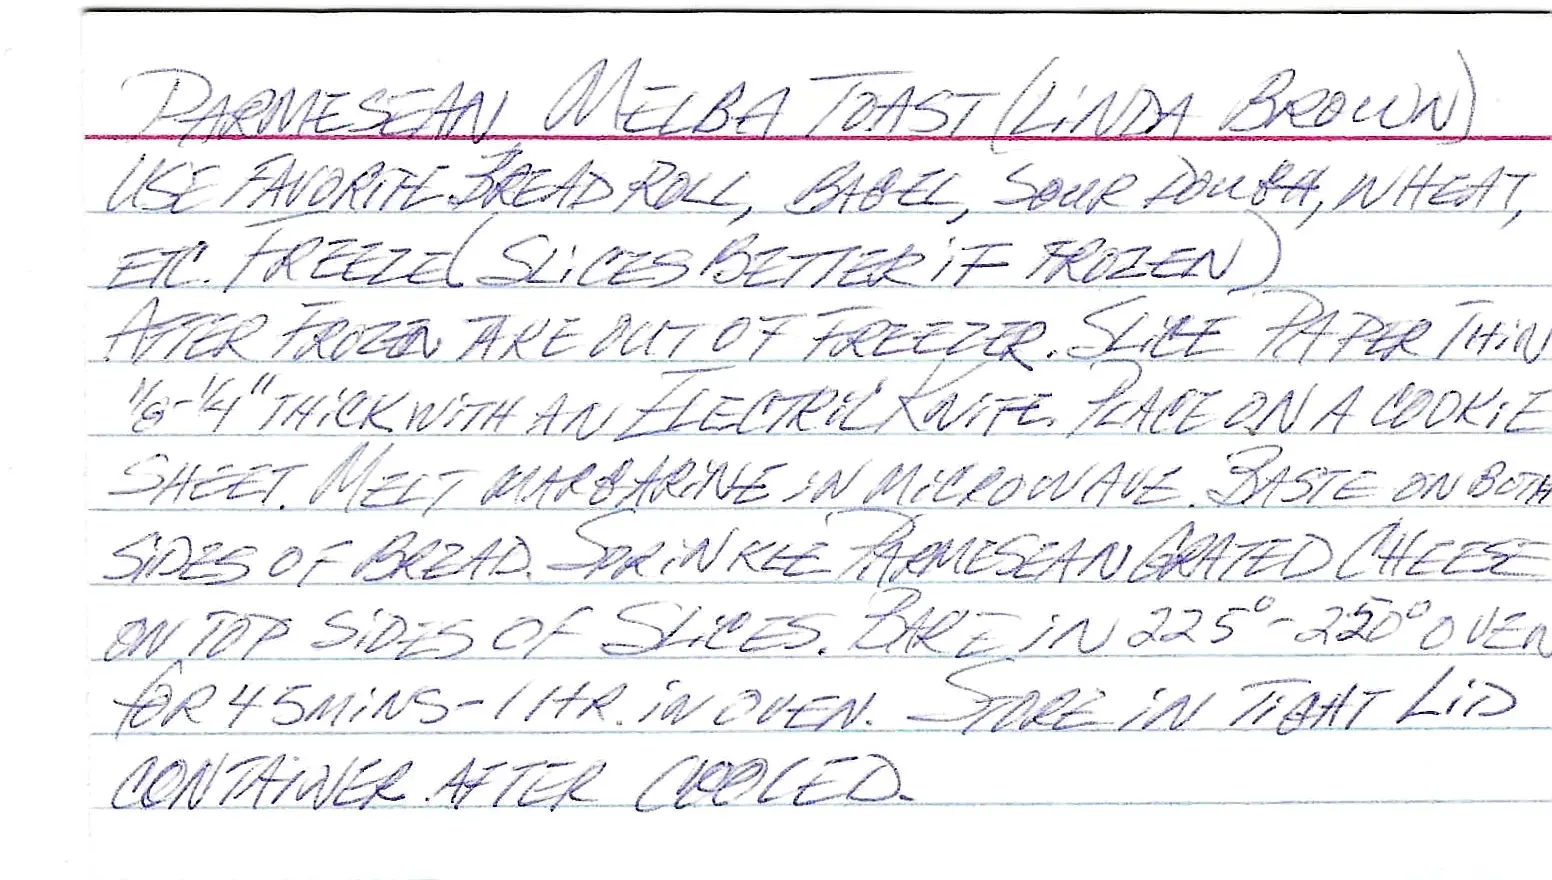 PARMESEAN MELBA TOAST (LINDA BROWN)
USE FAVORITE BREAD ROLL, BAGEL, SOUR DOUGH, WHEAT,
ETC. FREEZE (SLICES BETTER IF FROZEN)
AFTER FROZEN TAKE OUT OF FREEZER. SLICE PAPER THIN
1/8-1/4" THICK WITH AN ELECTRIC KNIFE. PLACE ON A COOKIE
SHEET. MELT MARGARINE IN MICROWAVE. BASTE ON BOTH
SIDES OF BREAD. SPRINKLE PARMESEAN GRATED CHEESE
ON TOP SIDES OF SLICES. BAKE IN 225°-250° OVEN
FOR 45 MINS-1 HR. IN OVEN. STORE IN TIGHT LID
CONTAINER AFTER COOLED.